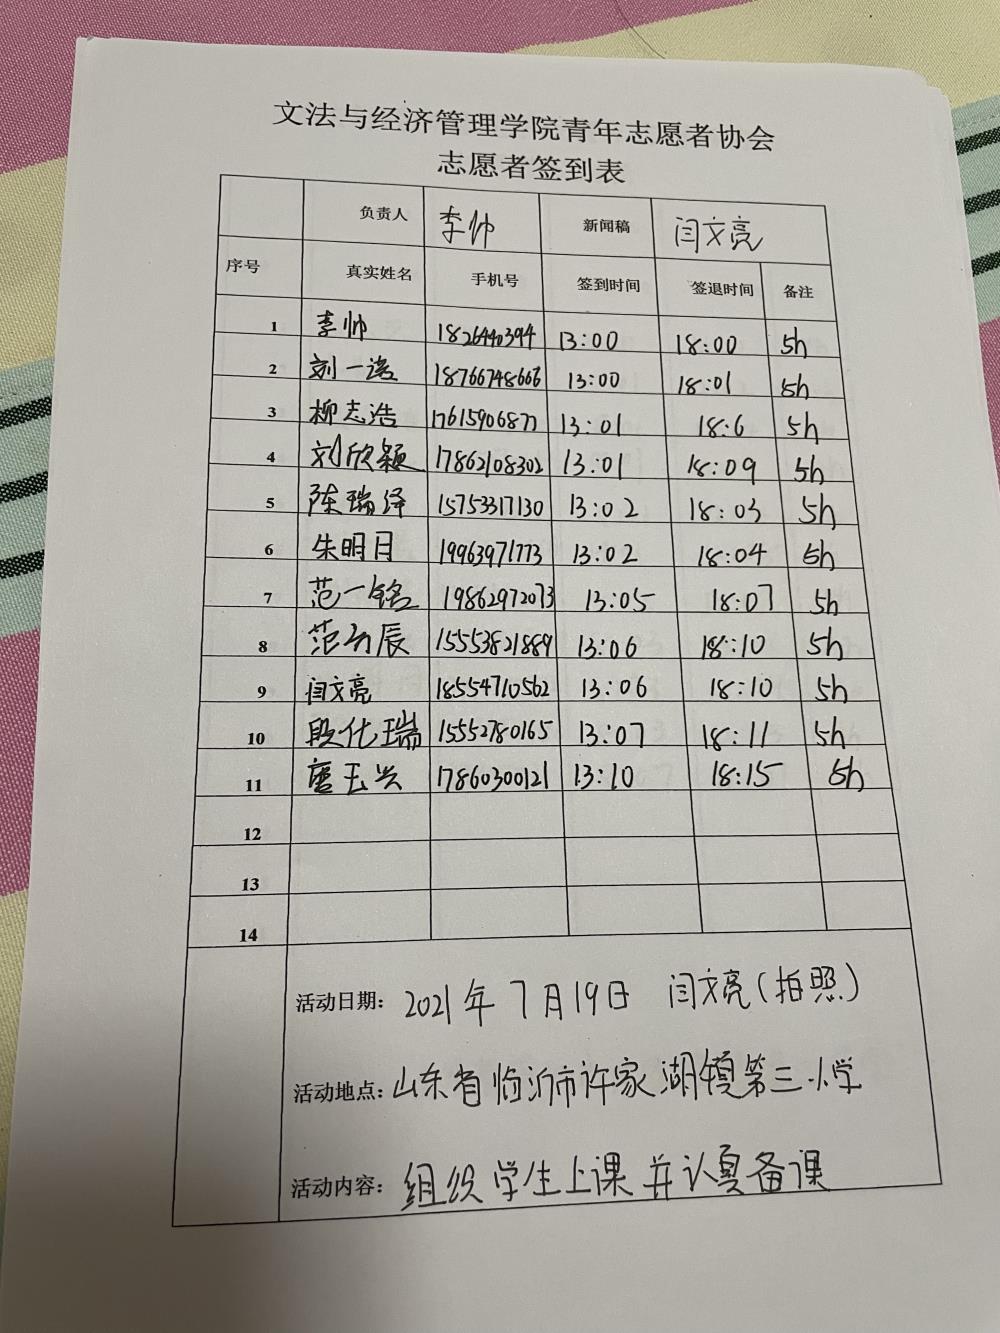 文法与经济管理学院青年志愿者协会
志愿者签到表
负责人 李帅 新闻稿 闫文亮
序号 真实姓名 手机号 签到时间 签退时间 备注
1 李帅 1826440394 13:00 18:00 5h
2 刘一诺 18766748666 13:00 18:01 5h
3 柳志浩 17615906877 13:01 18:6 5h
4 刘欣颖 17862108302 13:01 18:09 5h
5 陈瑞泽 15753317130 13:02 18:03 5h
6 朱明月 19963971773 13:02 18:04 5h
7 范一铭 19862972073 13:05 18:07 5h
8 范 辰 15553821889 13:06 18:10 5h
9 闫文亮 18554710562 13:06 18:10 5h
10 段化瑞 15552780165 13:07 18:11 5h
11 唐玉兴 17860300121 13:10 18:15 5h
12
13
14
活动日期: 2021年7月19日 闫文亮(拍照)
活动地点: 山东省临沂市许家湖镇第三小学
活动内容: 组织学生上课并认真备课